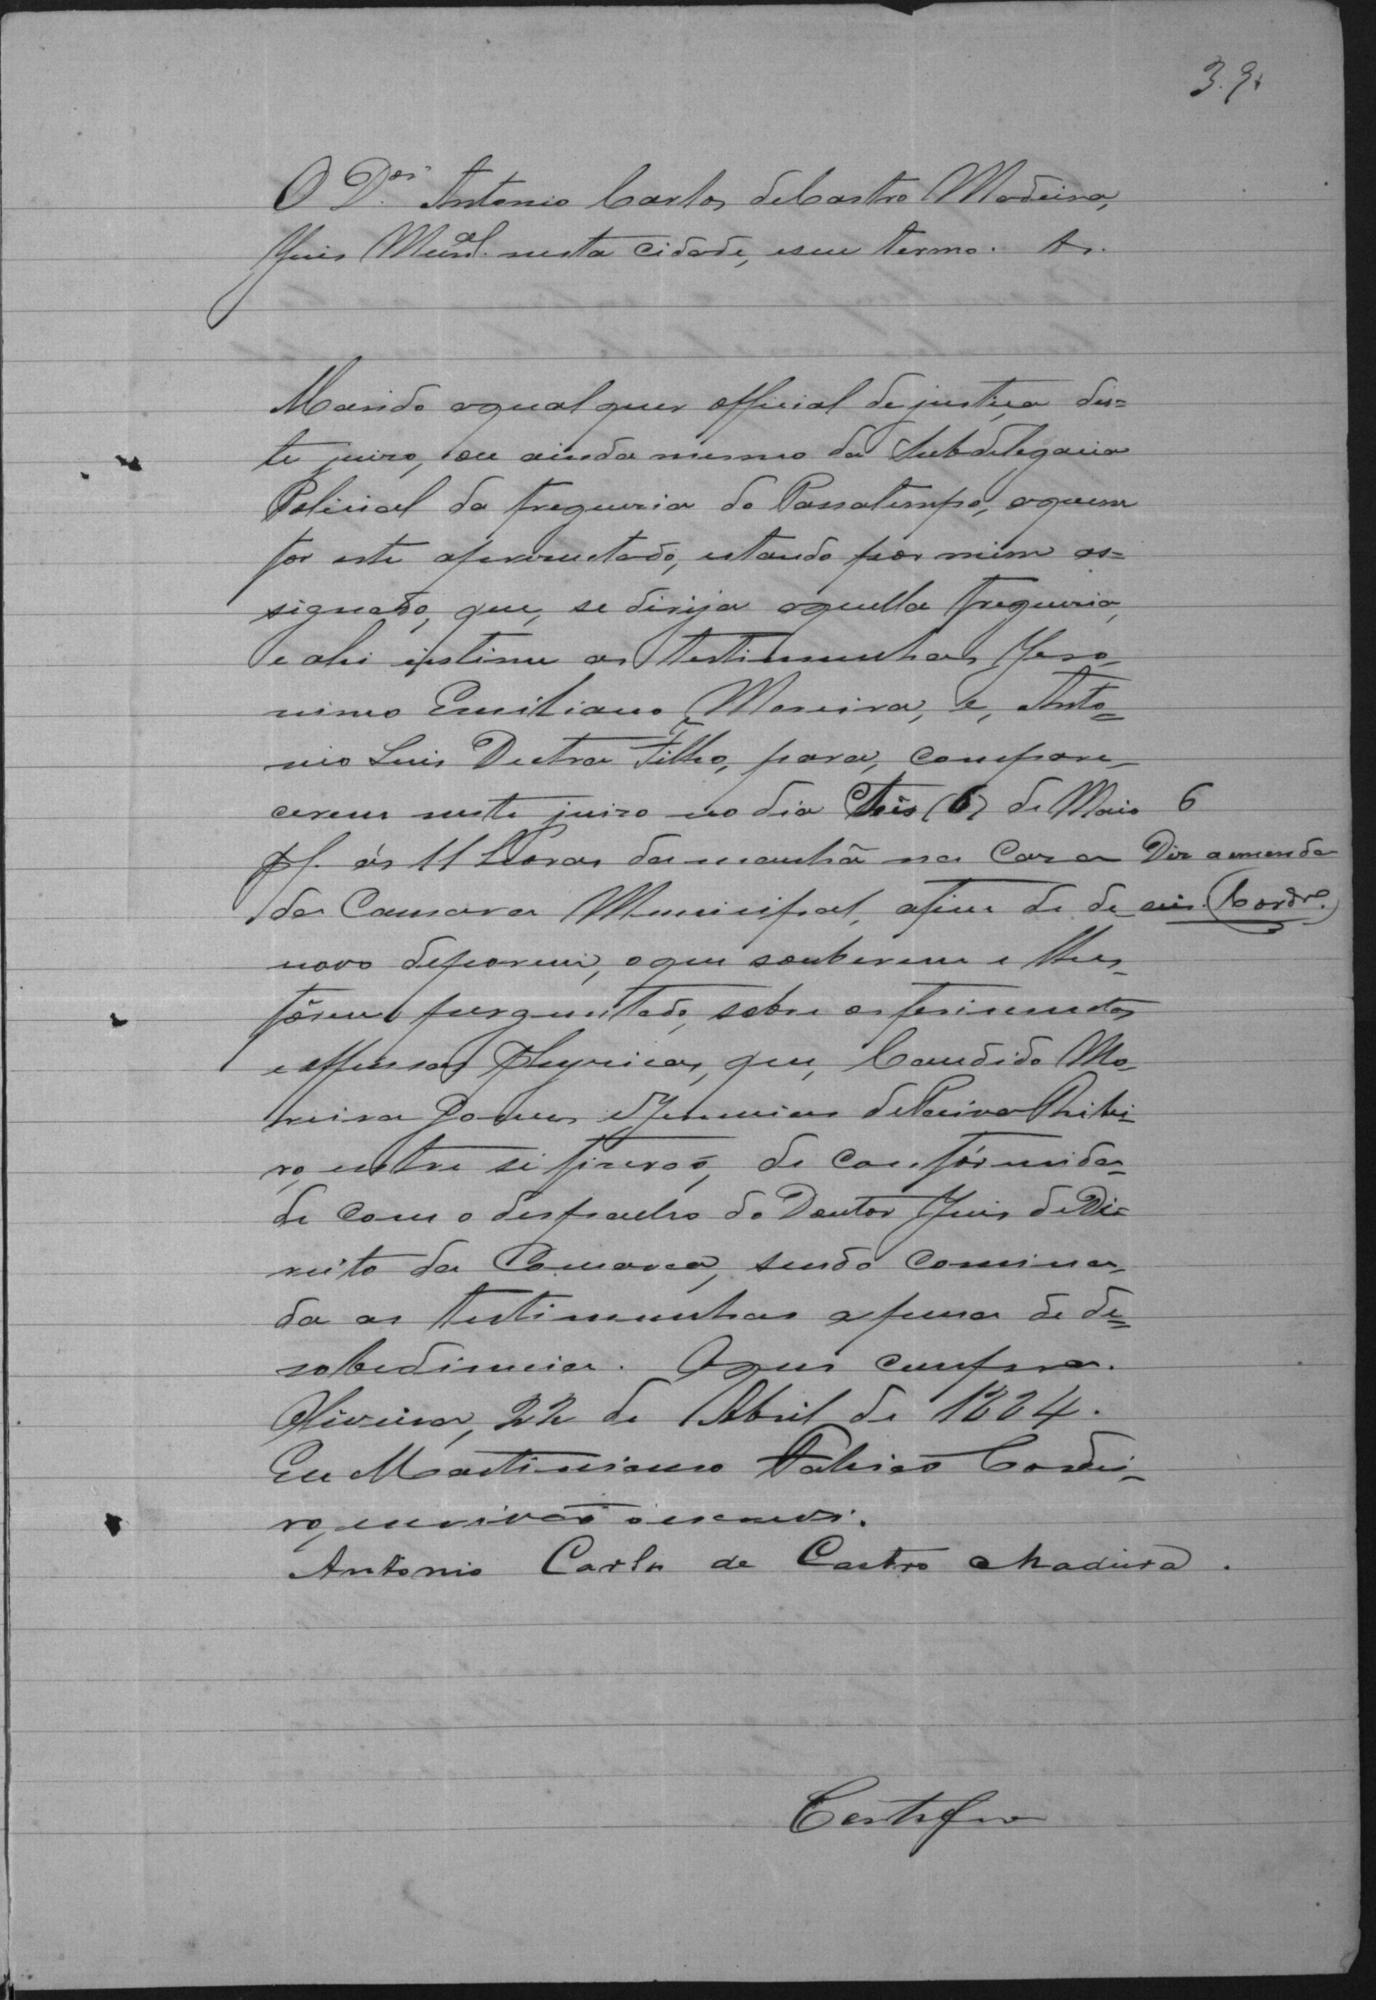 39.
O D.or Antonio Carlos de Castro Madeira,
Juis Mun.al nesta cidade, e seu termo. &.
Mando a qual quer official de justiça des=
te juiso, ou ainda mesmo da Subdelegacia
Policial da freguesia do Passatempo, a quem
for este apresentado, estando por mim as=
signado, que, se dirija aquella freguesia,
e ahi intime as testimunhas Jero-
nimo Emiliano Moreira, e, Anto=
nio Luis Dutra Filho, para, compare-
cerem neste juiso no dia seis (6) de Maio 6
pf. ás 11 horas da manhã na Casa Diz a emenda
da Camara Municipal, afim de de seis. Cordr.º
novo deporem, o que souberem e lhes
fôrem perguntado, sobre os ferimentos
e offensas phyricas, que, Candido Mo-
reira Gomes e Jeremias de Paiva Ribei-
ro, entre si fizerão, de confórmida-
de com o despacho do Doutor Juis de Di=
reito da Comarca, sendo comina-
da as testimunhas a pena de de=
sobediencia. O que cumpra.
Oliveira, 22 de Abril de 1884.
Eu Martiniano Cordei-
ro, escrivão o escrevi.
Antonio Carlos de Castro Madeira.
Certifico